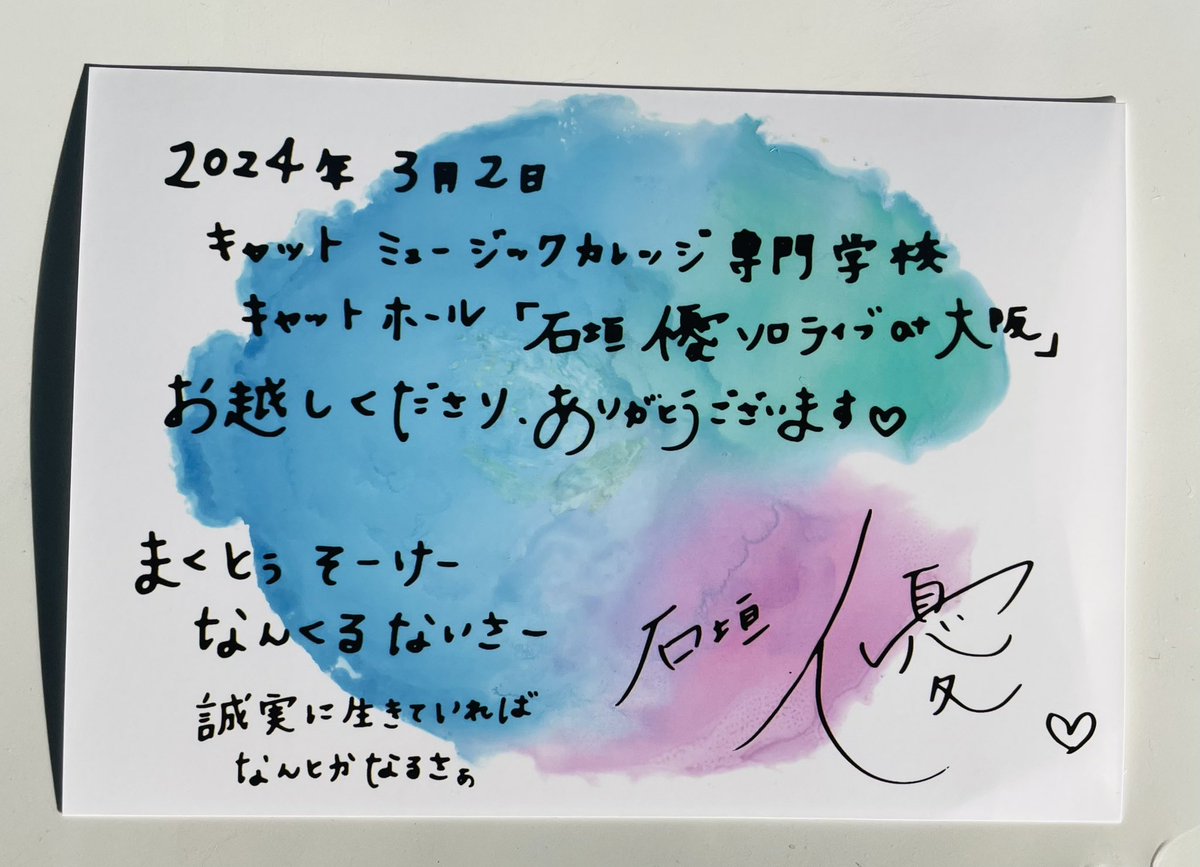 2024年 3月2日
キャット ミュージックカレッジ専門学校
キャットホール「石垣 優ソロライブat大阪」
お越しくださり、ありがとうございます♡
まくとぅ そーけー
なんくるないさー
誠実に生きていれば
なんとかなるさぁ
石垣 優♡